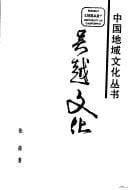 中国地域文化丛书
吴越文化